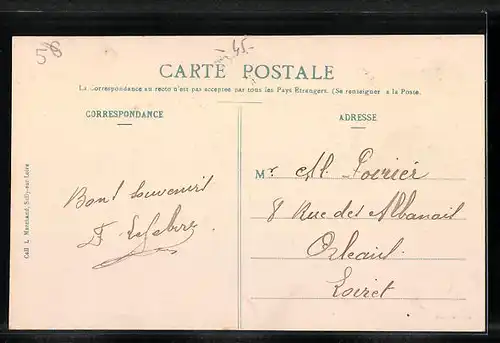 58
45-
CARTE POSTALE
La Correspondance au recto n'est pas acceptée par tous les Pays Etrangers. (Se renseigner à la Poste.
CORRESPONDANCE
ADRESSE
Mr. M. Poirier
8 Rue des Albanais
Orléans
Loiret
Bons souvenirs
F Lefebvre
Coll. L. Marchand, Sully-sur-Loire